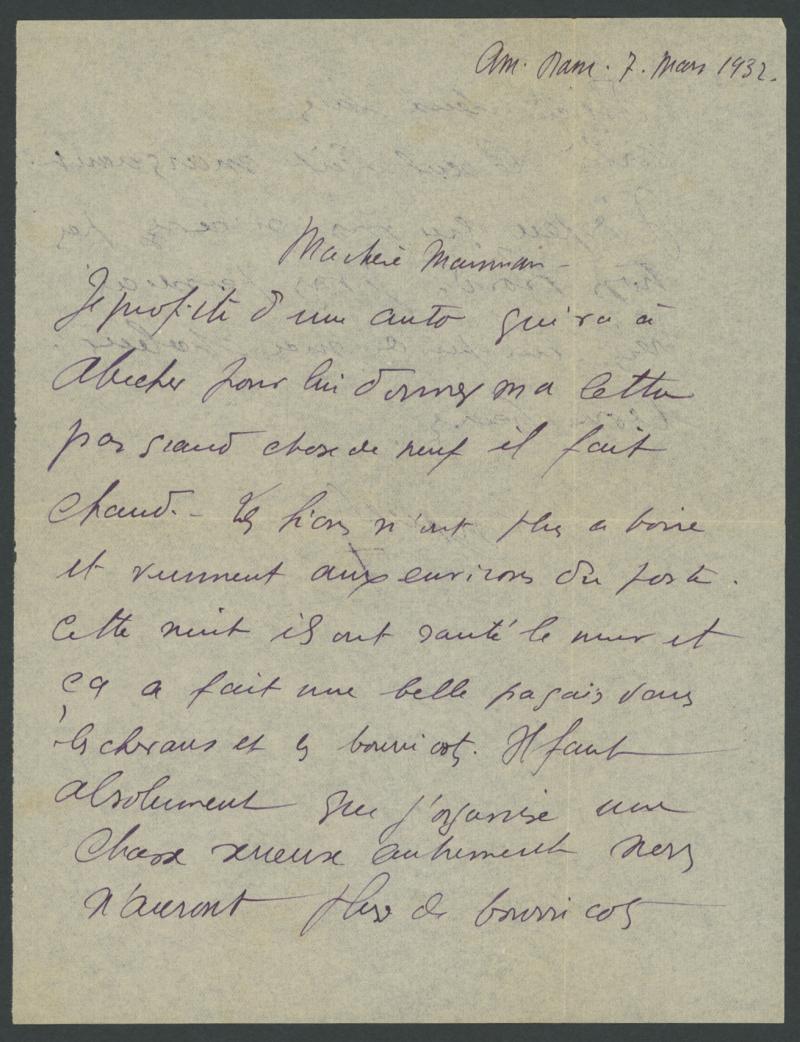 Am. Dam. 7. Mars 1932.
Ma chère Maman -
Je profite d'une auto qui va à
Abecher pour lui donner ma lettre
pas grand chose de neuf il fait
chaud. - Les lions n'ont plus a boire
et viennent aux environs du poste.
Cette nuit ils ont sauté le mur et
ça a fait une belle pagaie dans
les chevaux et les bourricots. Il faut
absolument que j'organise une
chasse serieuse autrement nous
n'auront plus de bourricots